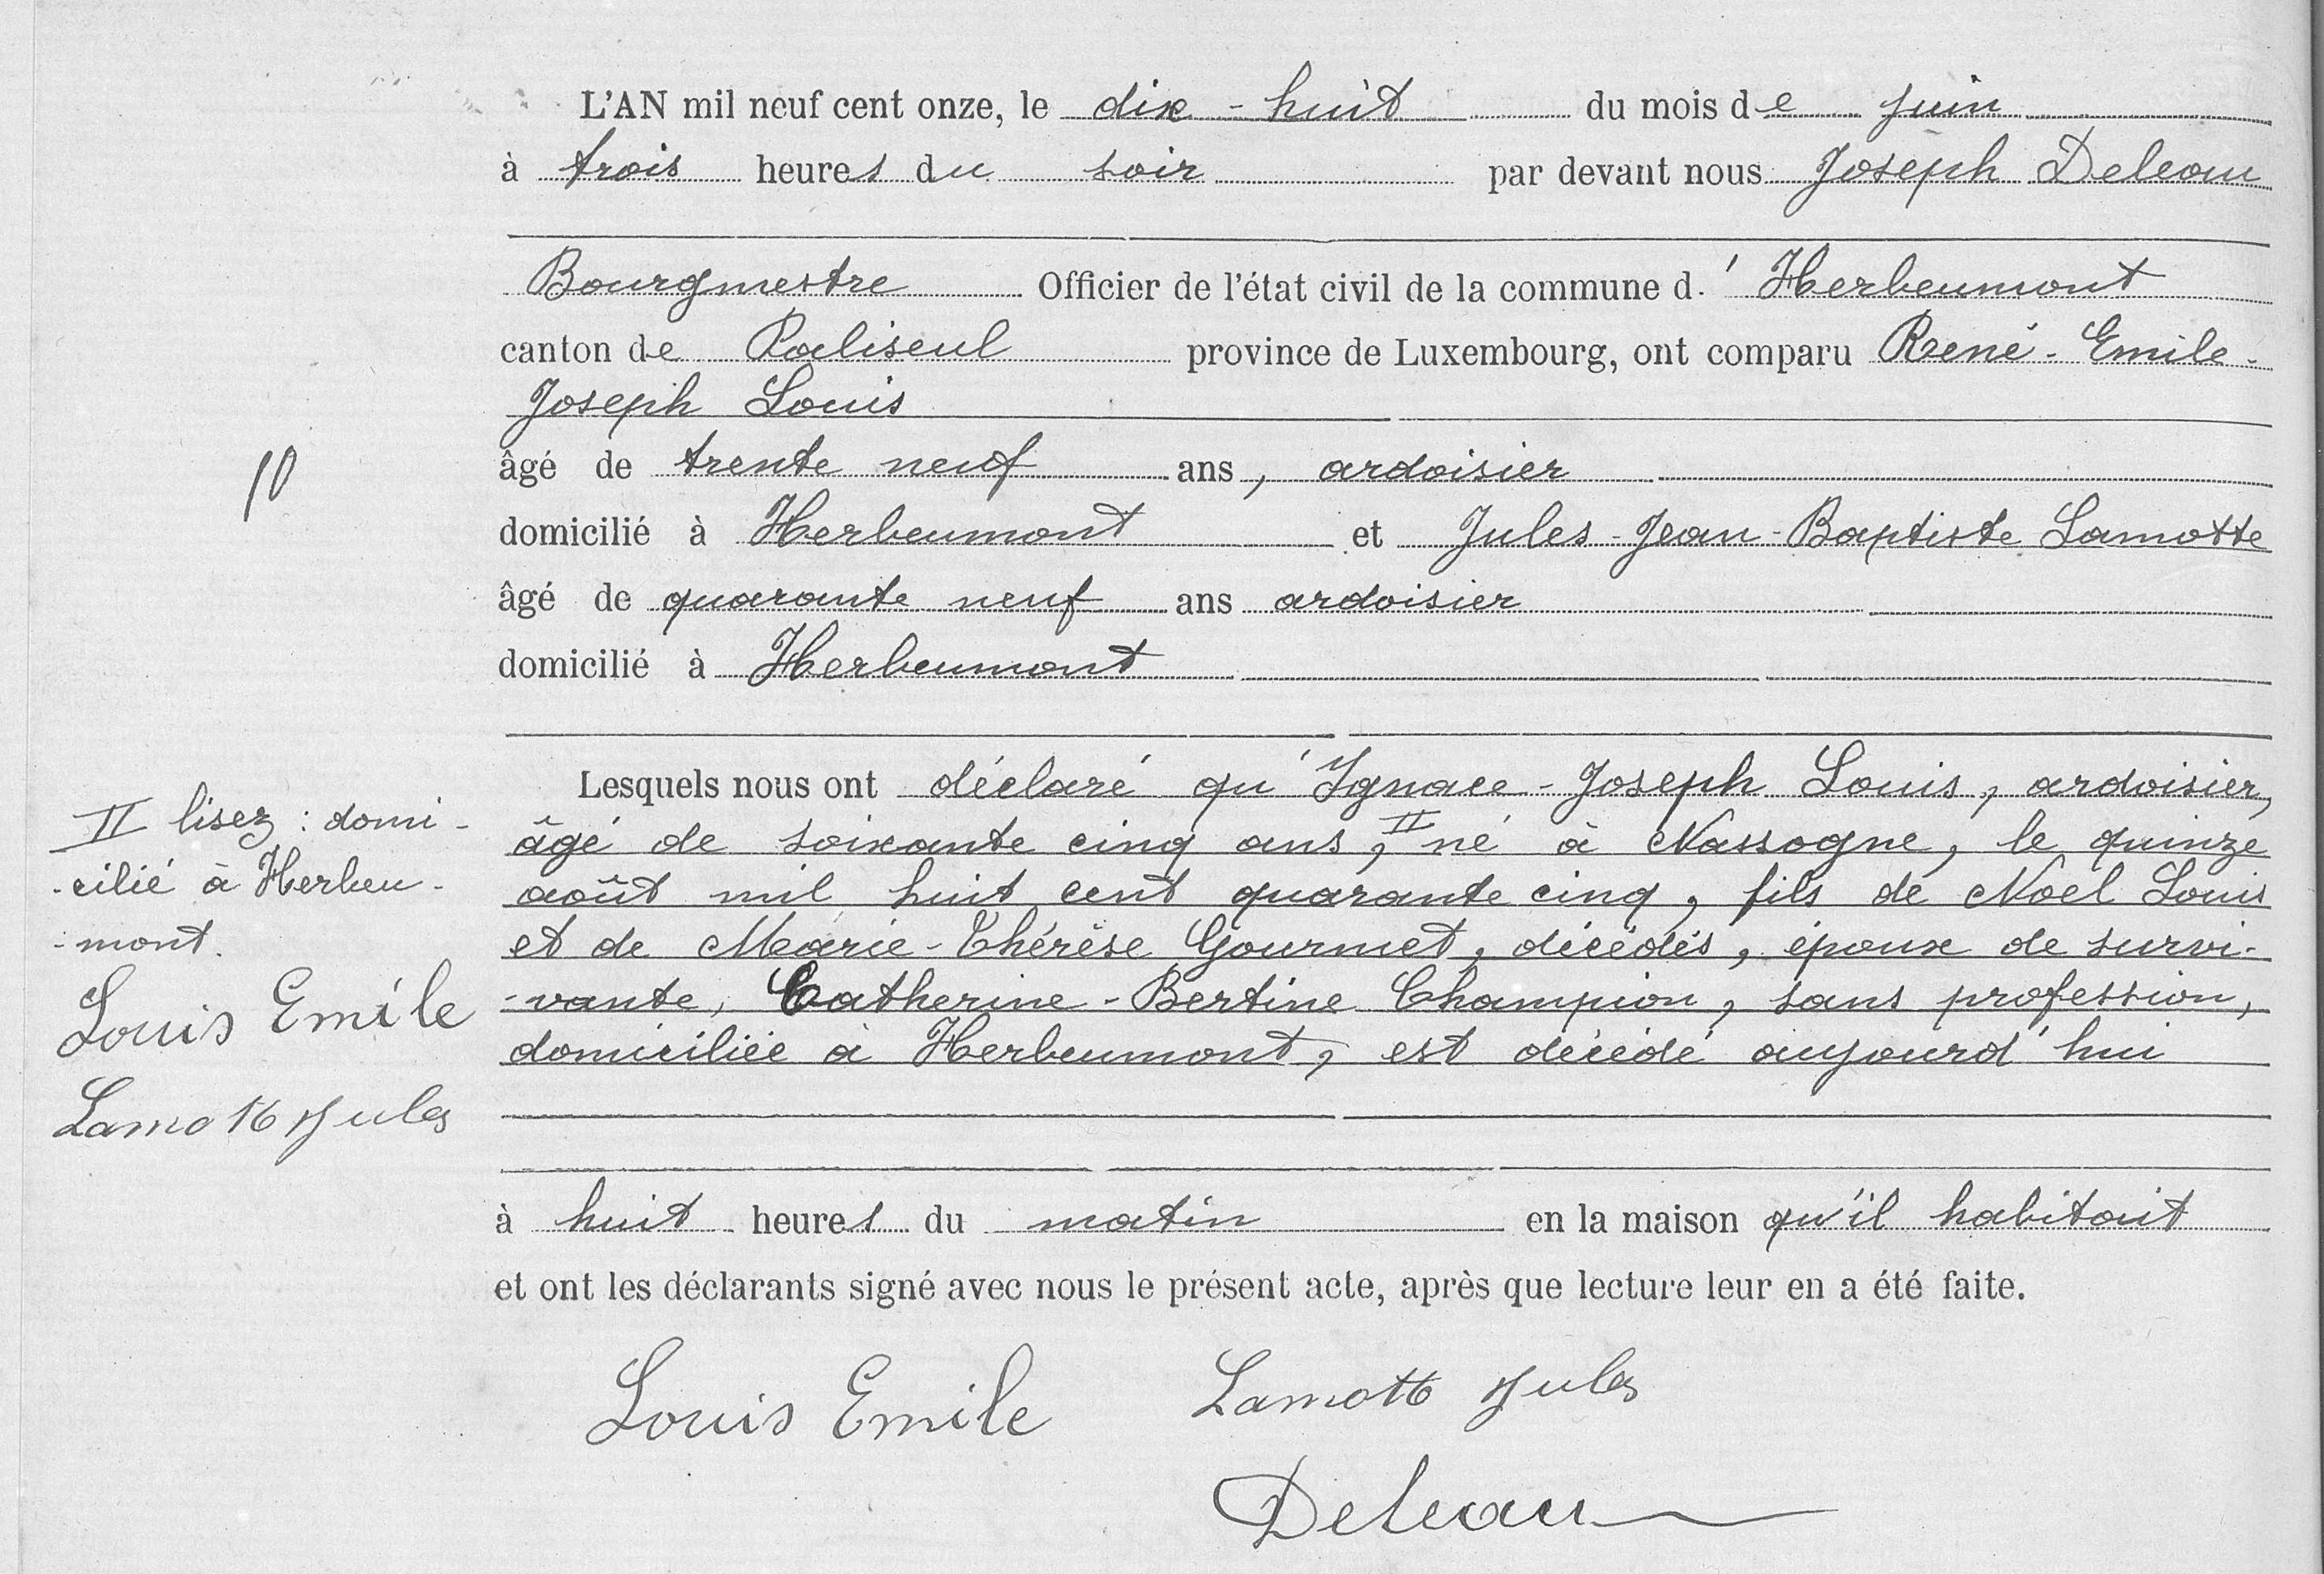 L'AN mil neuf cent onze, le dix-huit du mois de juin
à trois heures du soir par devant nous Joseph Deleau
Bourgmestre Officier de l'état civil de la commune d' Herbeumont
canton de Paliseul province de Luxembourg, ont comparu René-Emile-
Joseph Louis
âgé de trente neuf ans, ardoisier
domicilié à Herbeumont et Jules-Jean-Baptiste Lamotte
âgé de quarante neuf ans ardoisier
domicilié à Herbeumont
10
Lesquels nous ont déclaré qu'Ignace-Joseph Louis, ardoisier,
âgé de soixante cinq ans, II né à Nassogne, le quinze
août mil huit cent quarante cinq, fils de Noël Louis
et de Marie-Thérèse Gourmet, décédés, époux de survi-
-vante, Catherine-Bertine Champion, sans profession,
domiciliée à Herbeumont, est décédé aujourd'hui
à huit heures du matin en la maison qu'il habitait
et ont les déclarants signé avec nous le présent acte, après que lecture leur en a été faite.
II lisez : domi-
-cilié à Herbeu-
-mont.
Louis Emile
Lamotte Jules
Louis Emile Lamotte Jules
Deleau